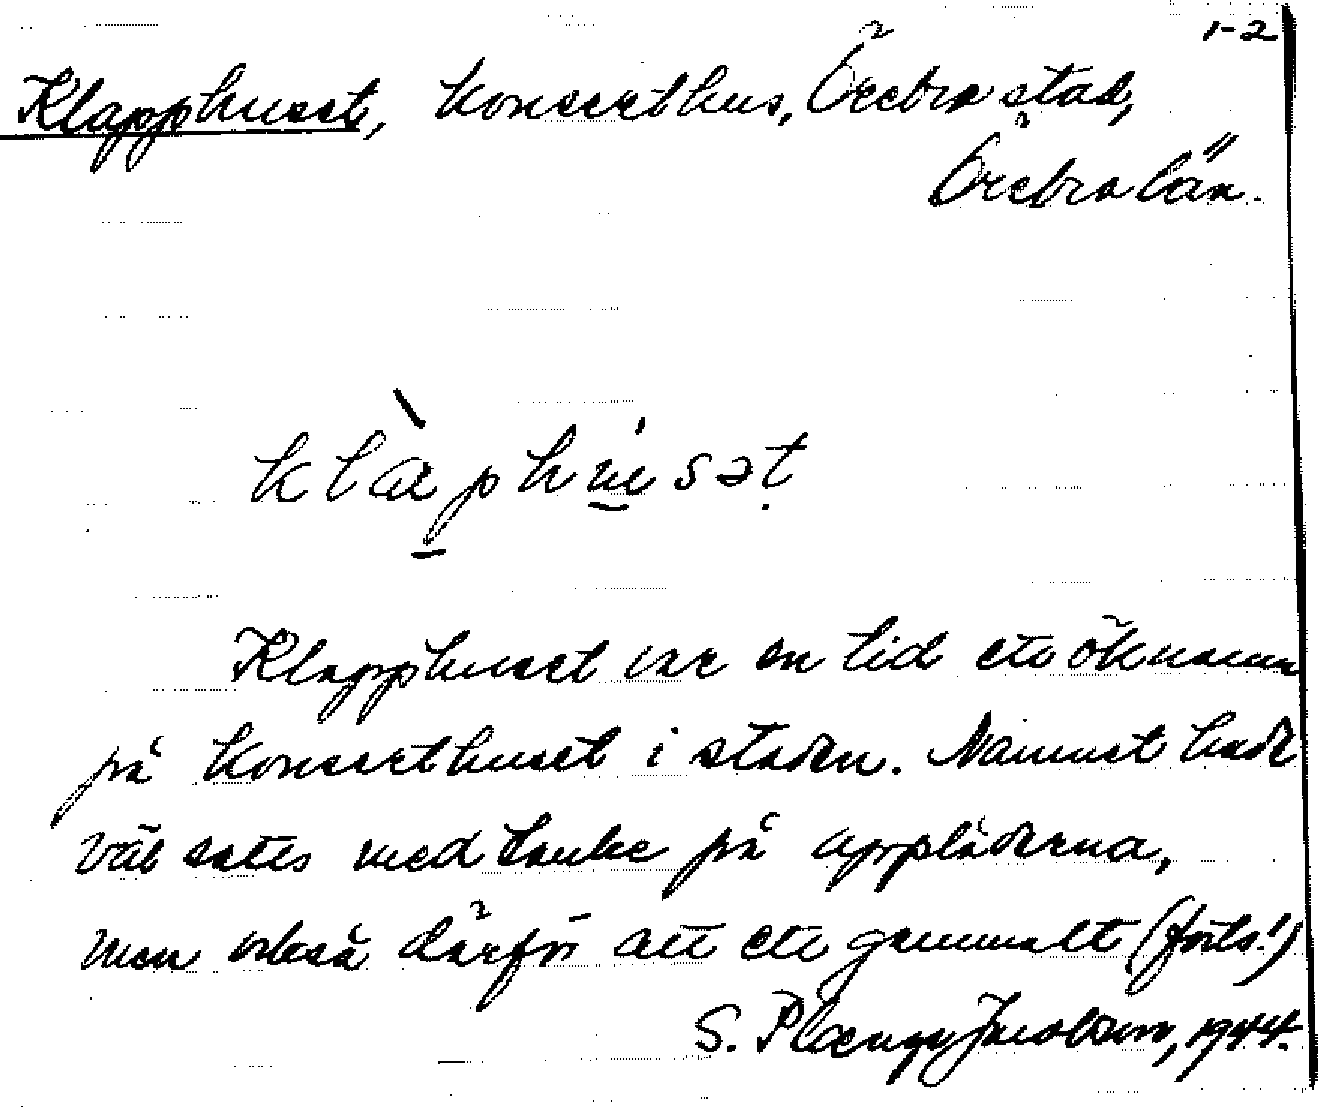 1-2
Klapphuset, Konserthus, Örebro stad,
Örebro län.
klàphúsət
Klapphuset var en tid ett öknamn
på Konserthuset i staden. Namnet hade
väl satts med tanke på applåderna,
men också därför att ett gammalt (forts.!)
S. Plænge Jacobson, 1944.